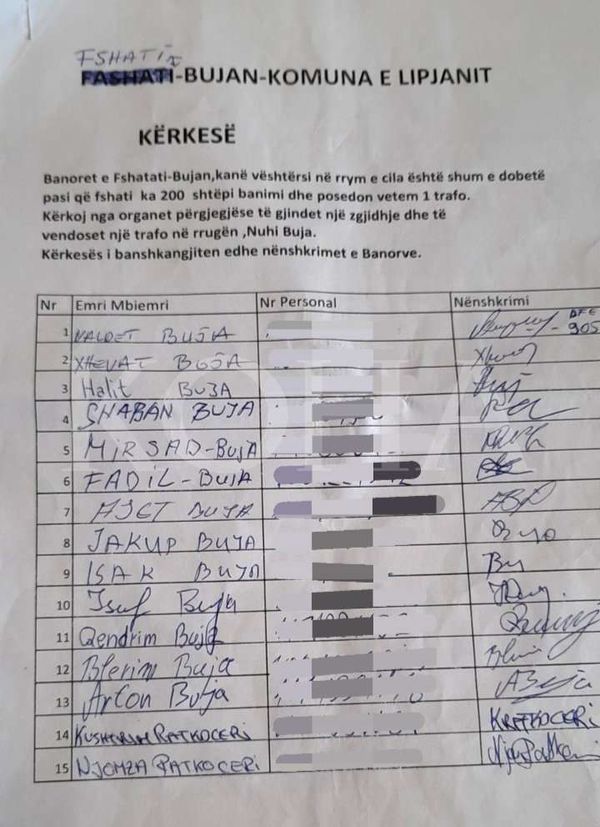 FSHATI
FASHATI-BUJAN-KOMUNA E LIPJANIT
KËRKESË
Banoret e Fshatati-Bujan,kanë vështërsi në rrym e cila është shum e dobetë
pasi që fshati ka 200 shtëpi banimi dhe posedon vetem 1 trafo.
Kërkoj nga organet përgjegjëse të gjindet një zgjidhje dhe të
vendoset një trafo në rrugën ,Nuhi Buja.
Kërkesës i banshkangjiten edhe nënshkrimet e Banorve.
Nr Emri Mbiemri Nr Personal Nënshkrimi
1 BUJA 905
2 XHEVAT BUJA
3 Halit BUJA
4 SHABAN BUJA
5 MIRSAD-BUJA
6 FADIL-BUJA
7 BUJA
8 JAKUP BUJA
9 ISAK BUJA
10 Isuf Buja
11 Qendrim Buja
12 Blerim Buja
13 Arton Buja ABuja
14 KUSHTRIM RATKOCERI KRATKOCERI
15 NJOMZA RATKOCERI